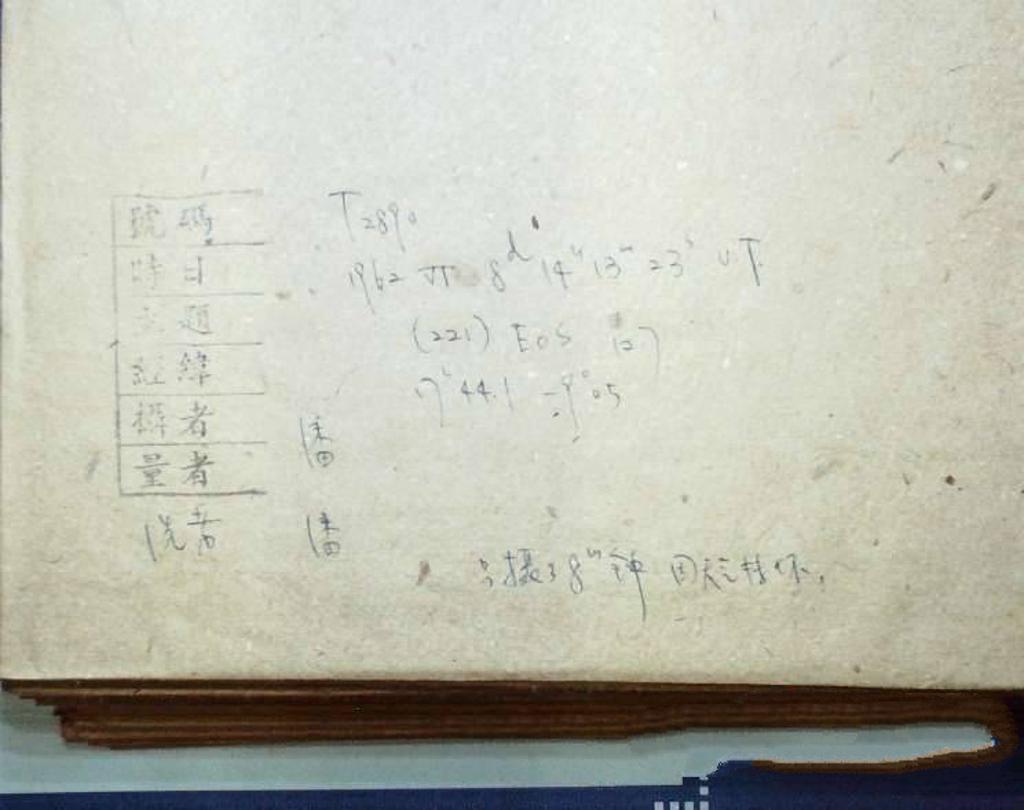 號碼 T2890
時日 1962 VI 8ᵈ 14ʰ 13ᵐ 23ˢ UT
主題 (221) EOS 127
經緯 17ʰ44.1 -9°05
攝者 潘
量者
洗者 潘
只摄了8ᵐ钟 因天气转坏.